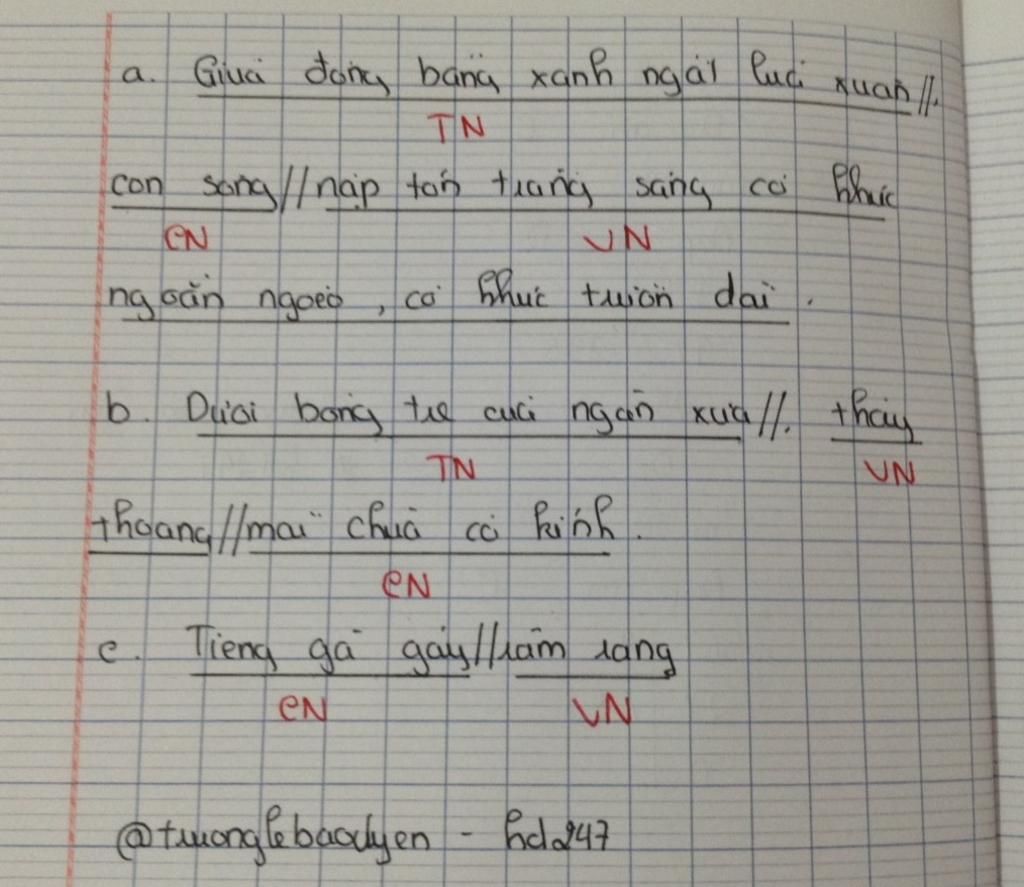 a. Giữa đồng bằng xanh ngát lúa xuân //,
TN
con sông // nắp tăn trắng sáng có khúc
CN VN
ngoằn ngoèo, có khúc trườn dài.
b. Dưới bóng tre của ngàn xưa //, thấy
TN VN
thoáng // mái chùa cổ kính.
CN
c. Tiếng gà gáy // râm rang
CN VN
@truonglebaoduyen - hd247